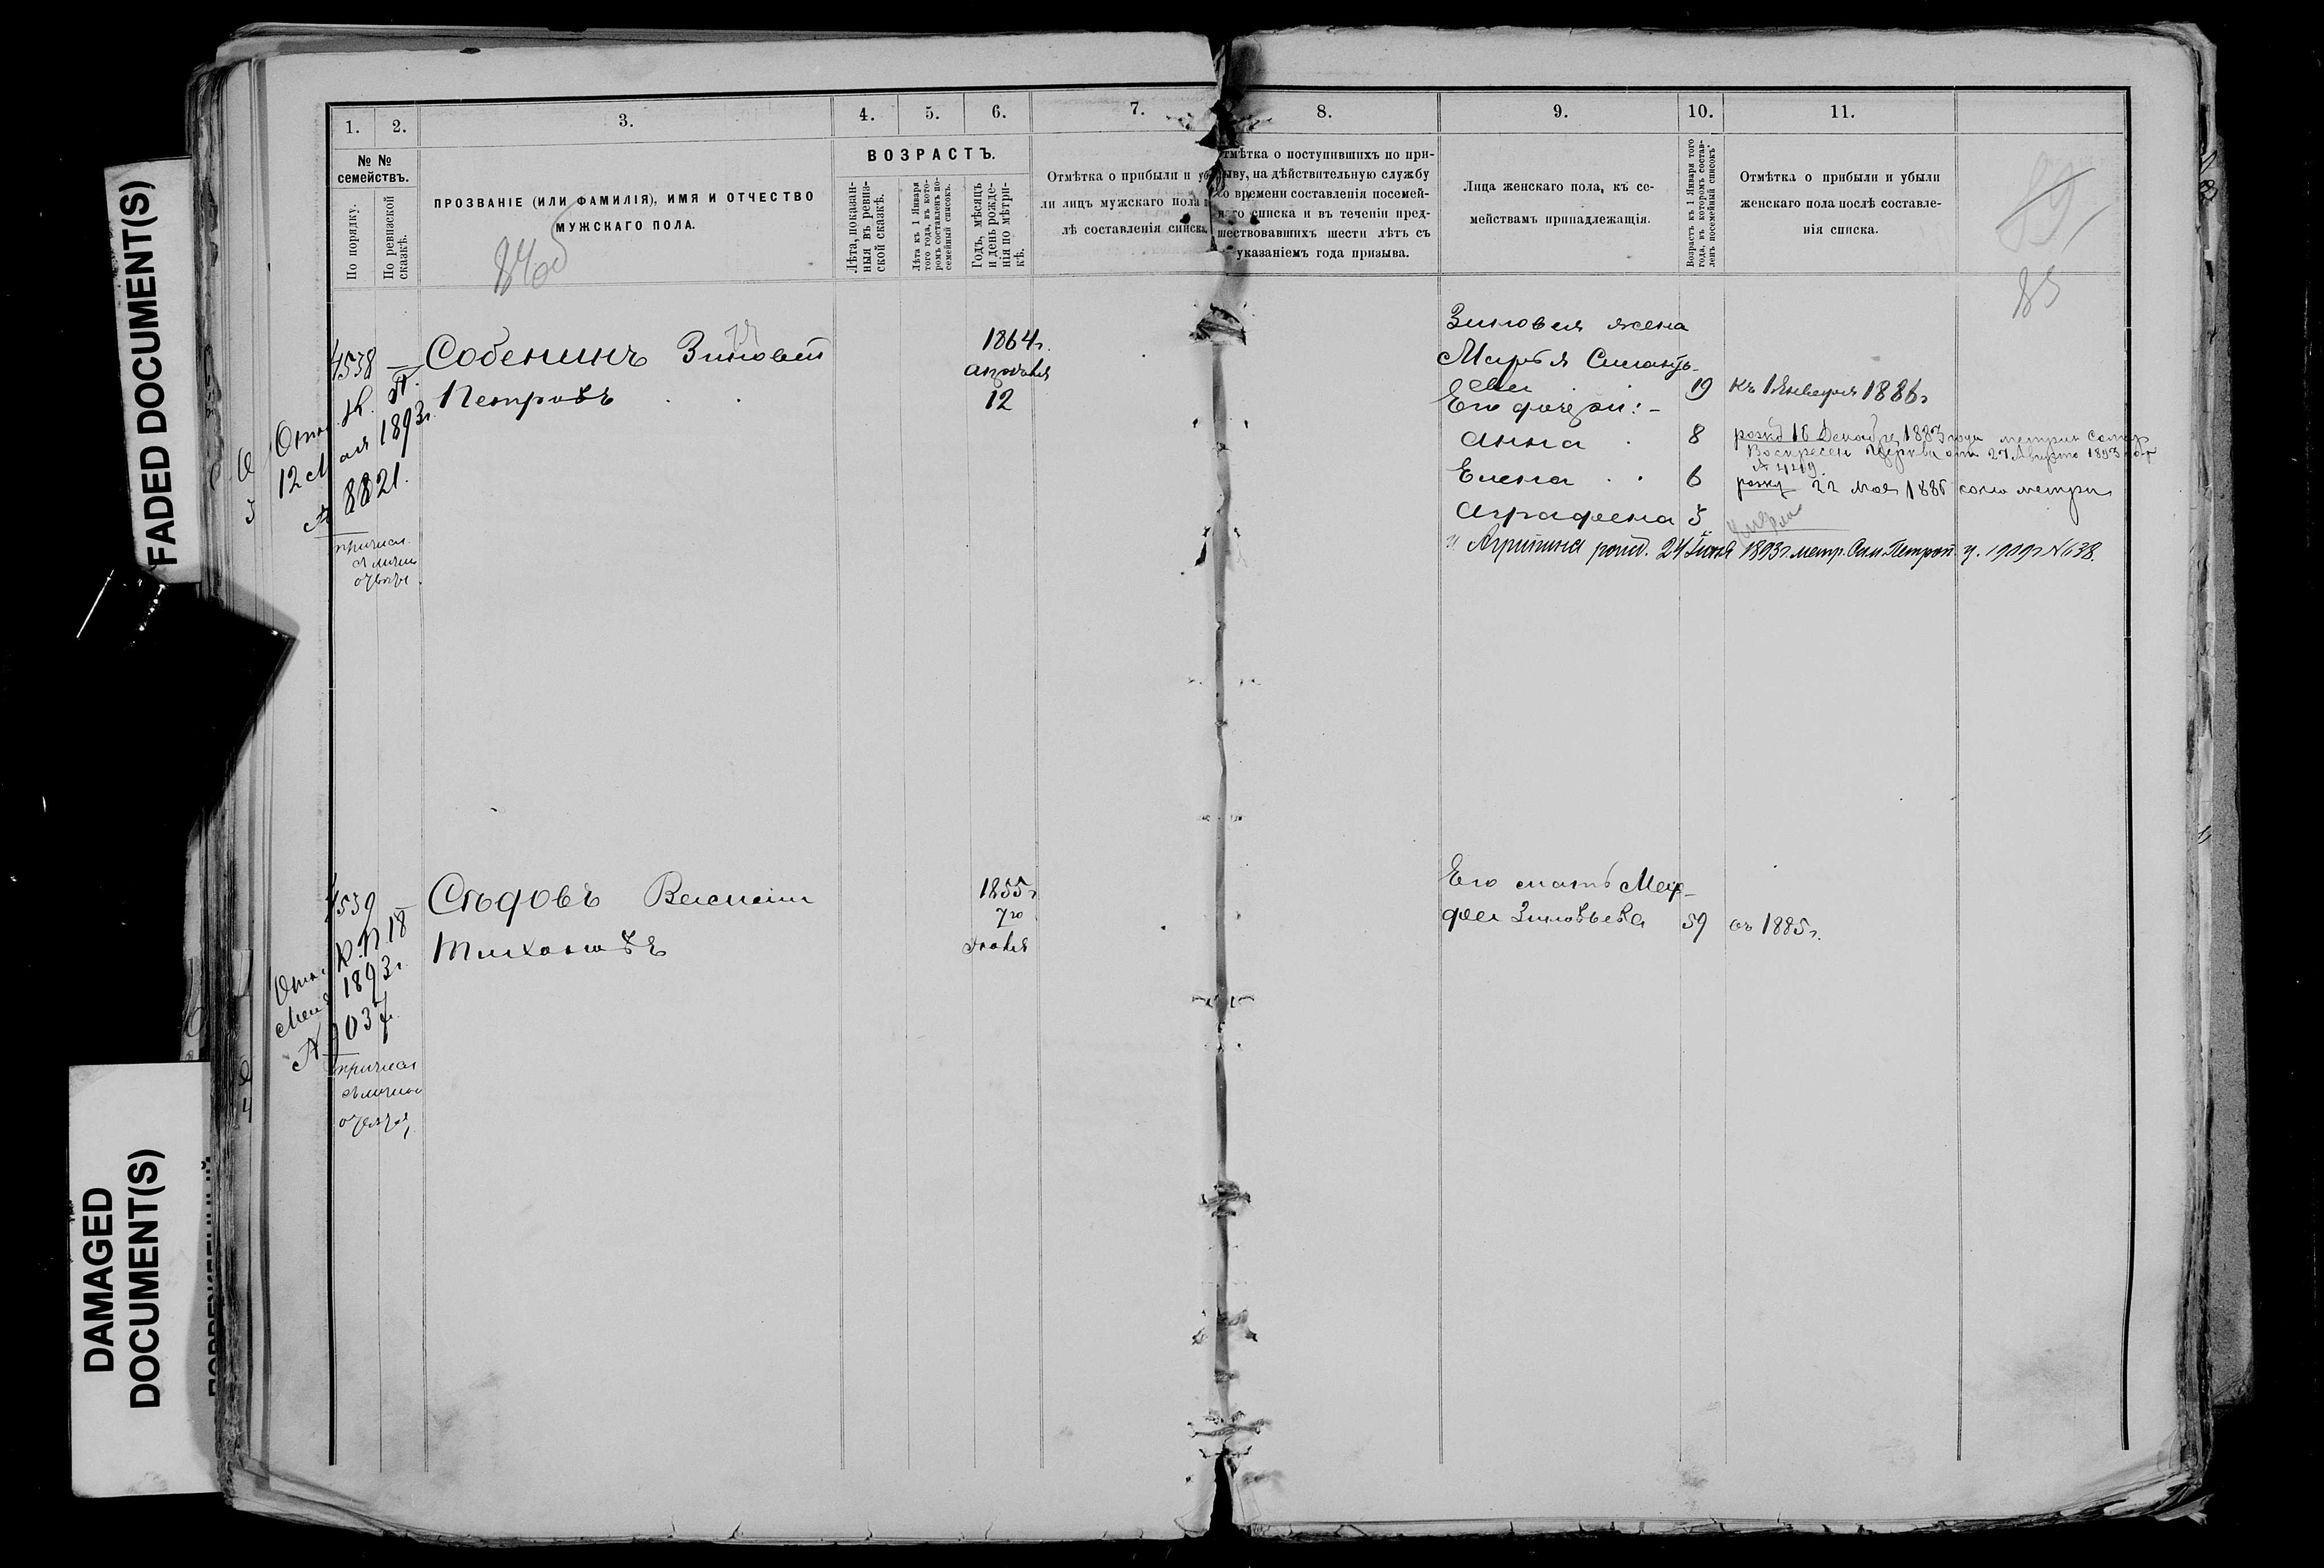 FADED DOCUMENT(S)
DAMAGED
DOCUMENT(S)
1.
2.
3.
4.
5.
6.
7.
8.
9.
10.
11.
№ №
семействъ.
По порядку.
По ревизской
сказкѣ.
ПРОЗВАНІЕ (ИЛИ ФАМИЛІЯ), ИМЯ И ОТЧЕСТВО
МУЖСКАГО ПОЛА.
ВОЗРАСТЪ.
Лѣта, показан-
ныя въ ревиз-
ской сказкѣ.
Лѣта къ 1 Января
того года, въ кото-
ромъ составленъ по-
семейный списокъ.
Годъ, мѣсяцъ
и день рожде-
нія по метри-
кѣ.
Отмѣтка о прибыли и
ли лицъ мужскаго пола
лѣ составленія списка.
тмѣтка о поступившихъ по при-
ыву, на дѣйствительную службу
со времени составленія посемей-
наго списка и въ теченіи пред-
шествовавшихъ шести лѣтъ съ
указаніемъ года призыва.
Лица женскаго пола, къ се-
мействамъ принадлежащія.
Возрастъ къ 1 Января того
года, въ которомъ состав-
ленъ посемейный списокъ
Отмѣтка о прибыли и убыли
женскаго пола послѣ составле-
нія списка.
89
85
4538
Собенинъ Зиновей
Петровъ
1864г.
апрѣля
12
Отн. К. П.
12 Мая 1893г.
№ 8821.
причисл.
Зиновея жена
Марья
19 къ 1 Января 1886г
Его дочери:
Анна 8 рожд 16 Декабря 1883 года метрик
Воскресен Церкви от 27 Августа 1893
№ 4219.
Елена 6 рожд 22 мая 1886
Аграфена 5
Агрипина рожд. 24 Іюня 1893г. метр. 1909г №638.
4539
Сѣдовъ Василій
Тихоновъ
1855г
7го
Отн. К. П. 18
1893г.
№ 9037
причисл
Его мать Мар-
фа Зиновьева 59 съ 1885г.